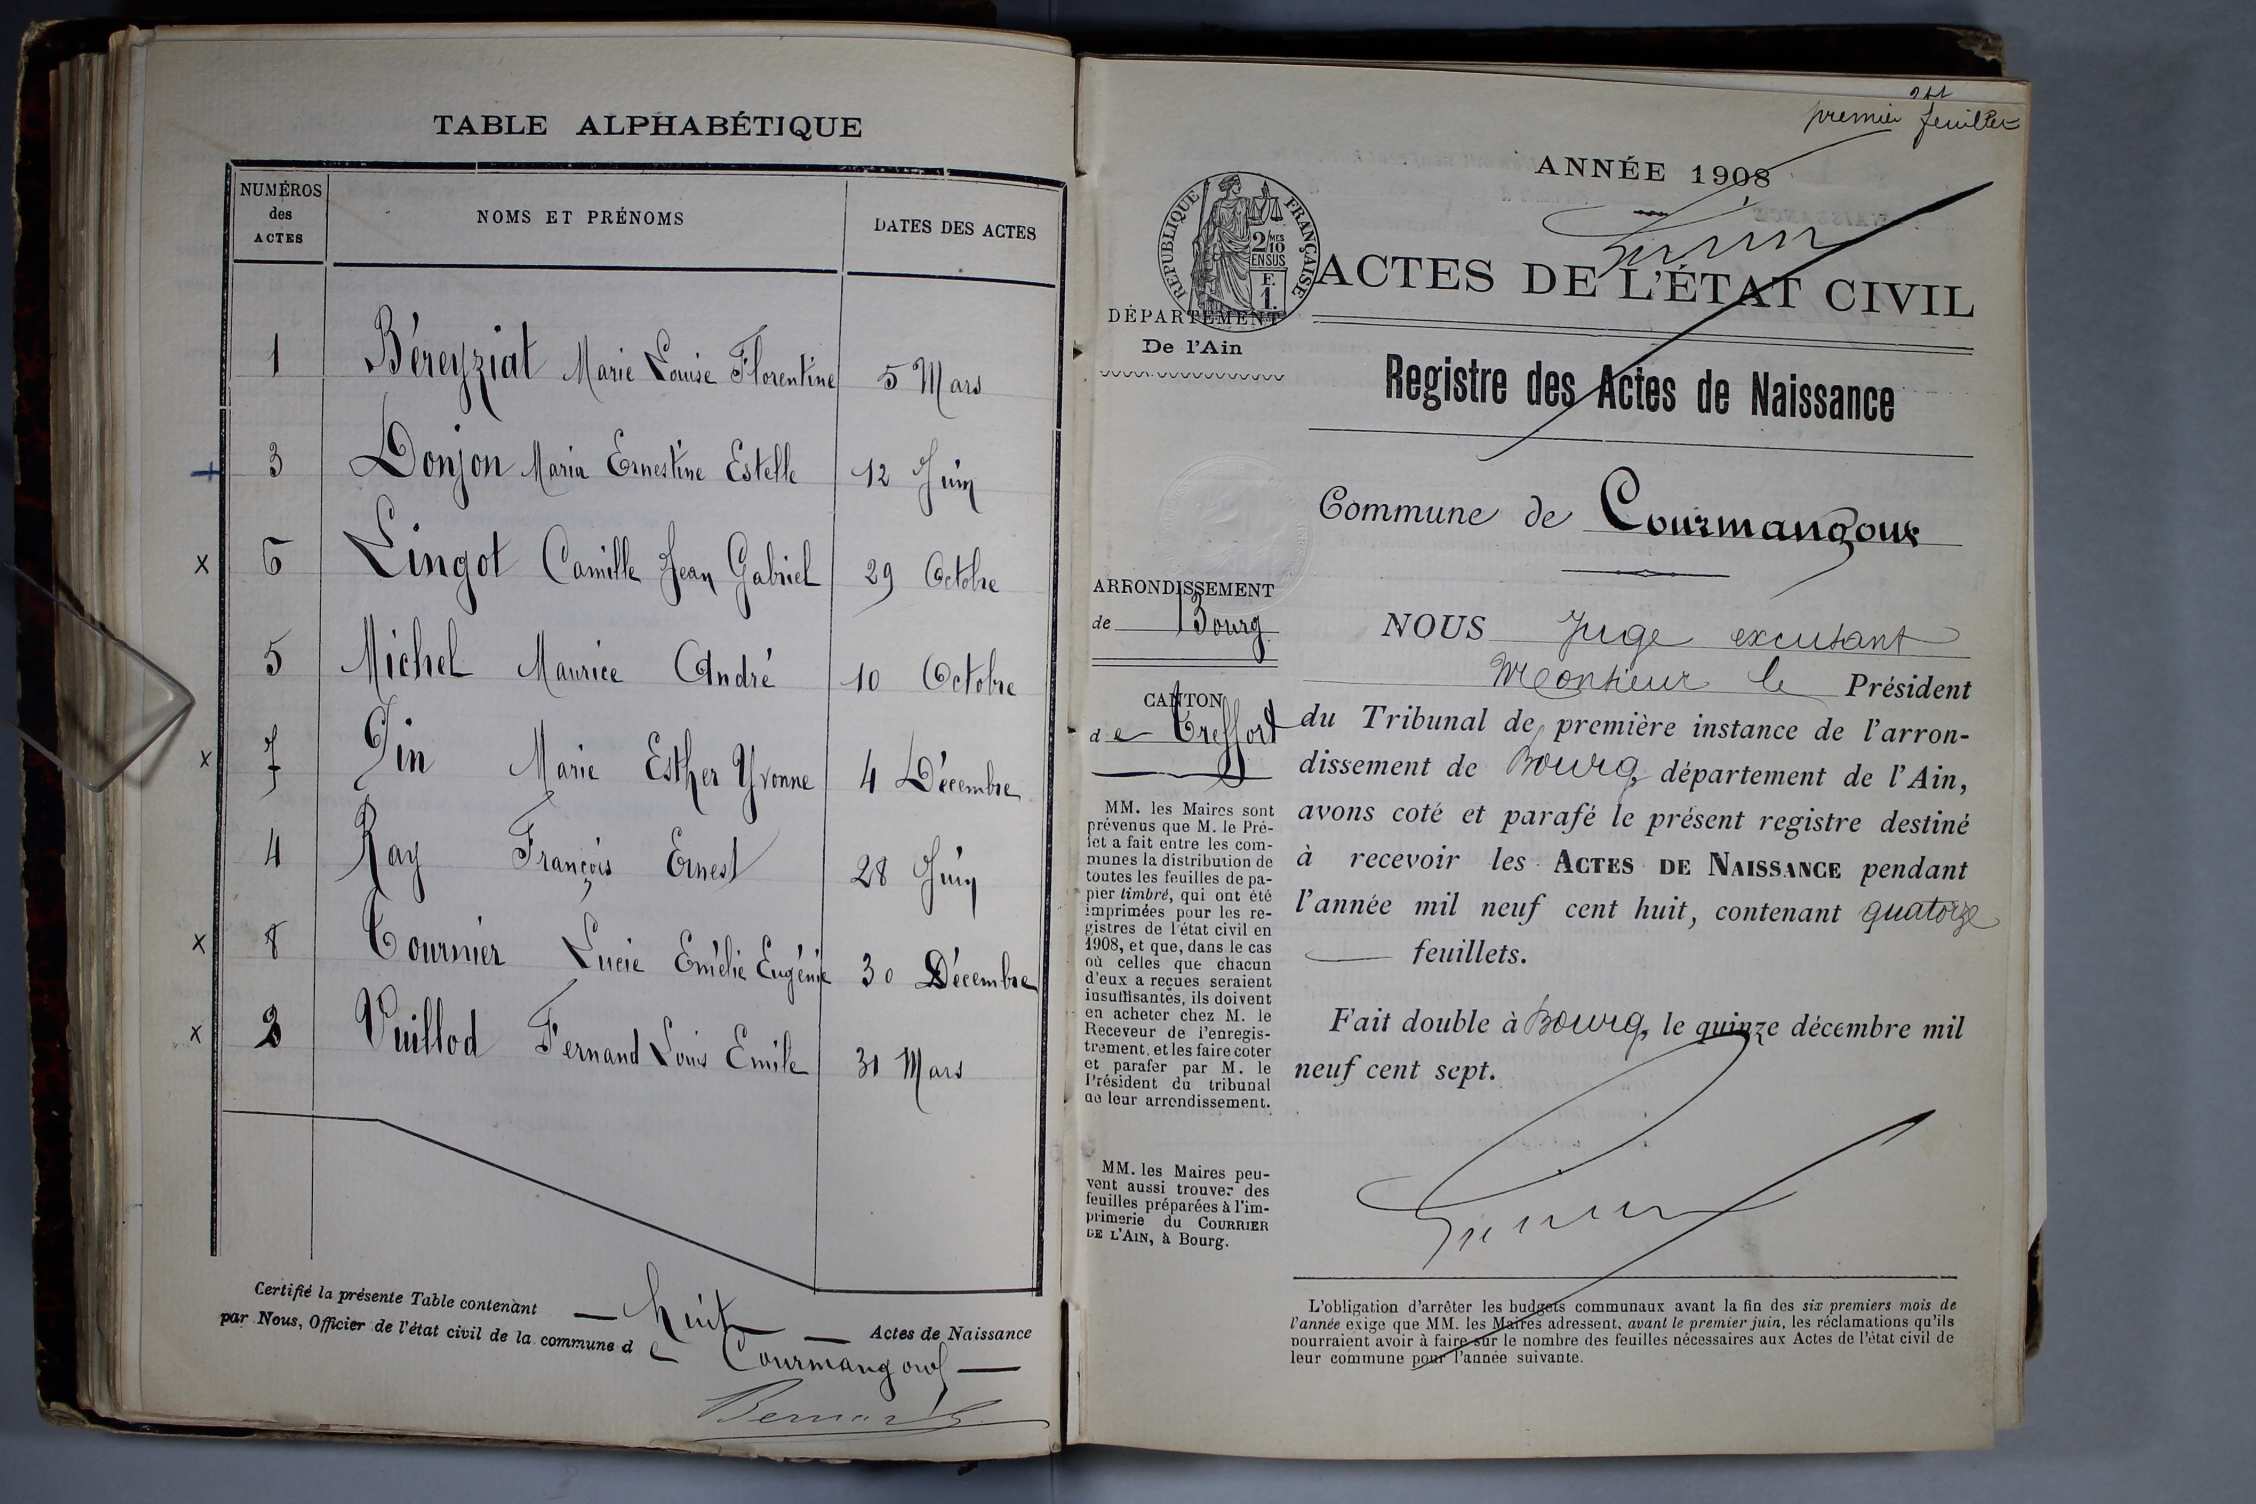 TABLE ALPHABÉTIQUE
NUMÉROS
des
ACTES
NOMS ET PRÉNOMS
DATES DES ACTES
1 Béreyziat Marie Louise Florentine 5 Mars
+ 3 Donjon Maria Ernestine Estelle 12 Juin
x 6 Lingot Camille Jean Gabriel 29 Octobre
5 Michel Maurice André 10 Octobre
x 7 Pin Marie Esther Yvonne 4 Décembre
4 Ray François Ernest 28 Juin
x 8 Tournier Lucie Emélie Eugénie 30 Décembre
x 2 Vuillod Fernand Louis Emile 31 Mars
Certifié la présente Table contenant — huit — Actes de Naissance
par Nous, Officier de l'état civil de la commune de Courmangoux —
premier feuillet
ANNÉE 1908
RÉPUBLIQUE FRANÇAISE
2/10
MES
EN SUS
F.
1.
ACTES DE L'ÉTAT CIVIL
DÉPARTEMENT
De l'Ain
Registre des Actes de Naissance
Commune de Courmangoux
ARRONDISSEMENT
de Bourg
CANTON
de Treffort
MM. les Maires sont
prévenus que M. le Pré-
fet a fait entre les com-
munes la distribution de
toutes les feuilles de pa-
pier timbré, qui ont été
imprimées pour les re-
gistres de l'état civil en
1908, et que, dans le cas
où celles que chacun
d'eux a reçues seraient
insuffisantes, ils doivent
en acheter chez M. le
Receveur de l'enregis-
trement, et les faire coter
et parafer par M. le
Président du tribunal
de leur arrondissement.
MM. les Maires peu-
vent aussi trouver des
feuilles préparées à l'im-
primerie du COURRIER
DE L'AIN, à Bourg.
NOUS Juge excusant
Monsieur le Président
du Tribunal de première instance de l'arron-
dissement de Bourg, département de l'Ain,
avons coté et parafé le présent registre destiné
à recevoir les ACTES DE NAISSANCE pendant
l'année mil neuf cent huit, contenant quatorze
— feuillets.
Fait double à Bourg, le quinze décembre mil
neuf cent sept.
L'obligation d'arrêter les budgets communaux avant la fin des six premiers mois de
l'année exige que MM. les Maires adressent, avant le premier juin, les réclamations qu'ils
pourraient avoir à faire sur le nombre des feuilles nécessaires aux Actes de l'état civil de
leur commune pour l'année suivante.